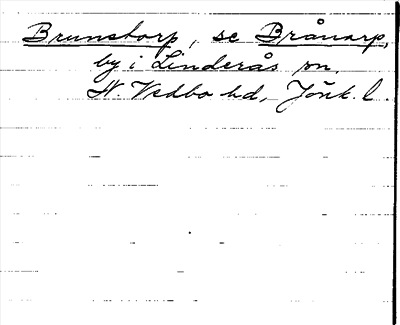 Brunstorp, se Brånarp,
by i Linderås sn,
N. Vedbo hd, Jönk. l.